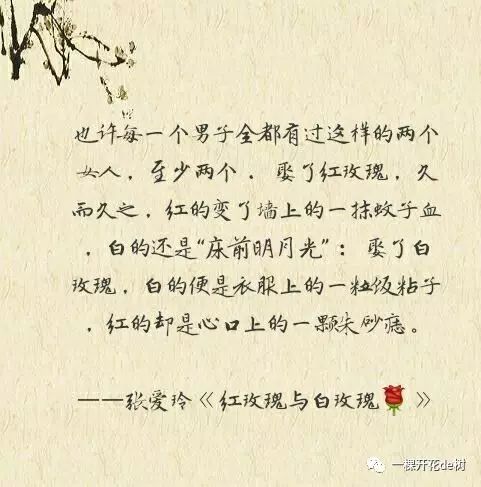 也许每一个男子全都有过这样的两个
女人，至少两个． 娶了红玫瑰，久
而久之，红的变了墙上的一抹蚊子血
，白的还是“床前明月光”： 娶了白
玫瑰，白的便是衣服上的一粒饭粘子
，红的却是心口上的一颗朱砂痣。
——张爱玲《红玫瑰与白玫瑰🌹》
一棵开花de树